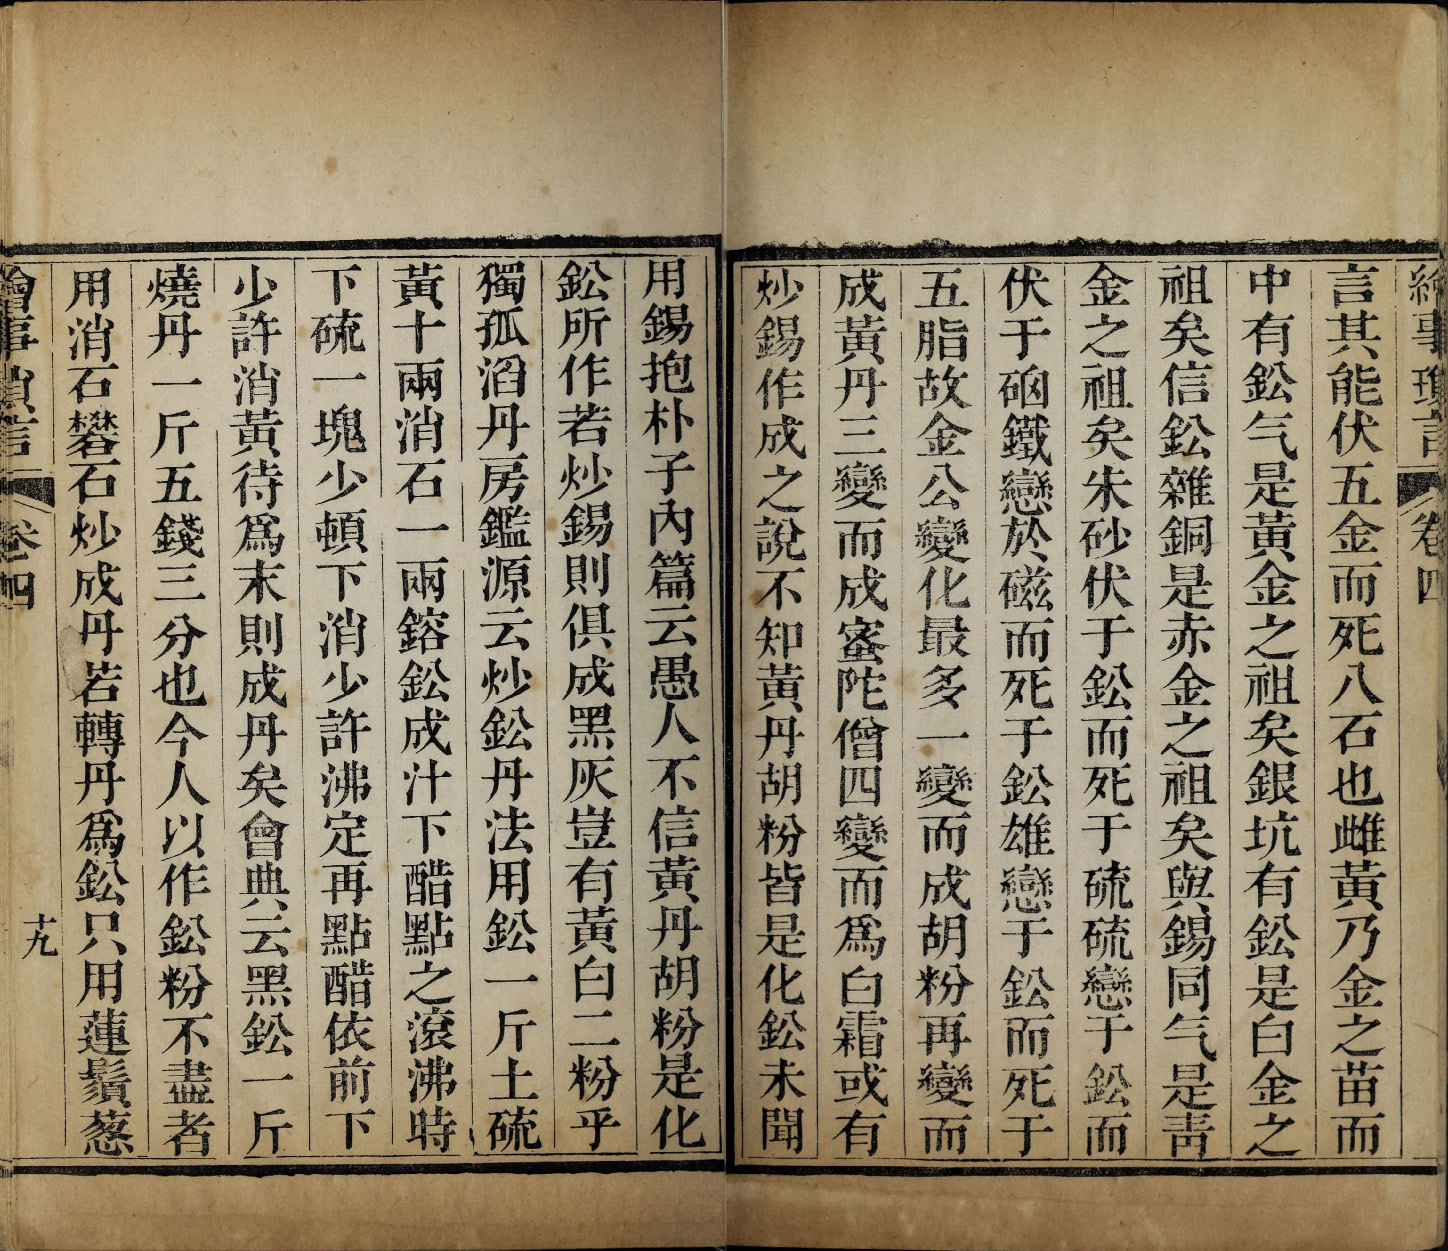 繪事瑣言 卷四
言其能伏五金而死八石也雌黃乃金之苗而
中有鈆气是黃金之祖矣銀坑有鈆是白金之
祖矣信鈆雜銅是赤金之祖矣與錫同气是靑
金之祖矣朱砂伏于鈆而死于硫硫戀于鈆而
伏于硇鐵戀於磁而死于鈆雄戀于鈆而死于
五脂故金公變化最多一變而成胡粉再變而
成黃丹三變而成蜜陀僧四變而爲白霜或有
炒錫作成之說不知黃丹胡粉皆是化鈆未聞
用錫抱朴子內篇云愚人不信黃丹胡粉是化
鈆所作若炒錫則俱成黑灰豈有黃白二粉乎
獨孤滔丹房鑑源云炒鈆丹法用鈆一斤土硫
黃十兩消石一兩鎔鈆成汁下醋點之滾沸時
下硫一塊少頓下消少許沸定再點醋依前下
少許消黃待爲末則成丹矣會典云黑鈆一斤
燒丹一斤五錢三分也今人以作鈆粉不盡者
用消石礬石炒成丹若轉丹爲鈆只用蓮鬚葱
繪事瑣言 卷四 十九